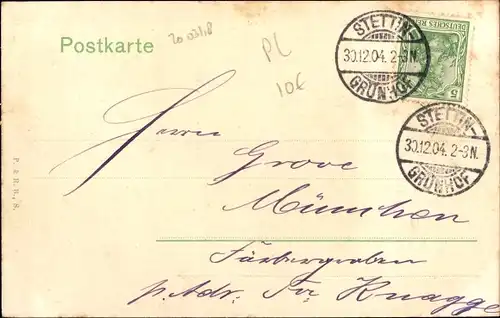 Postkarte
20 031.8
PL
10€
STETTIN-
30.12.04. 2-3N.
GRÜNHOF
DEUTSCHES REICH
5
STETTIN-
30.12.04. 2-3N.
GRÜNHOF
P. & R. B., S.
Herrn
Grove
München
Färbergraben
p. Adr. Fr. Knagge